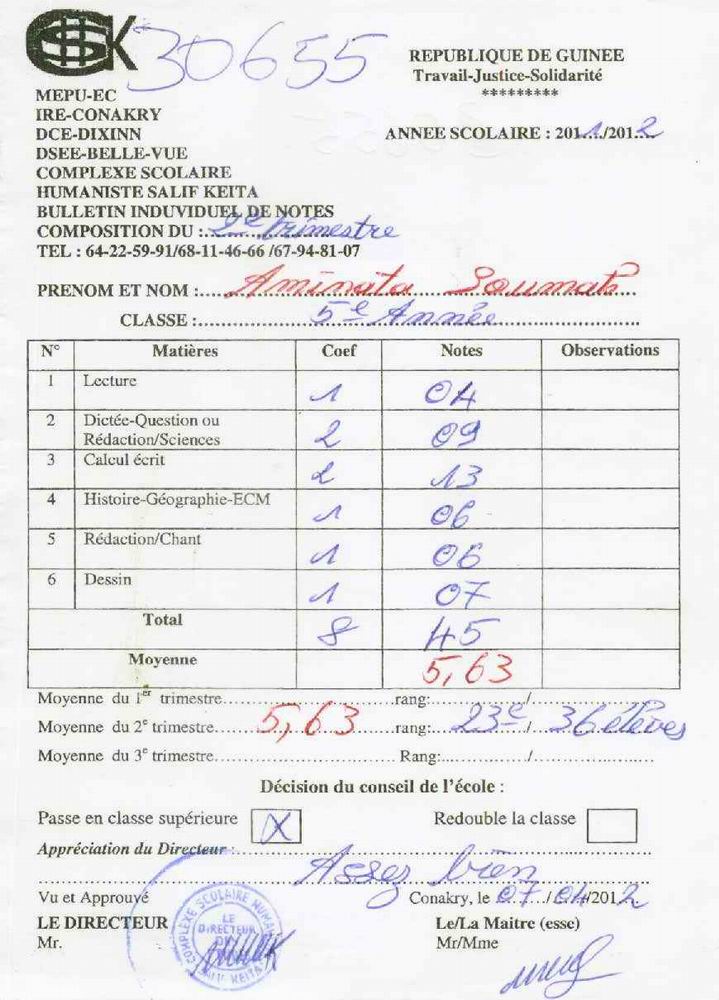 30655
REPUBLIQUE DE GUINEE
Travail-Justice-Solidarité
*********
MEPU-EC
IRE-CONAKRY
DCE-DIXINN
ANNEE SCOLAIRE : 2011/2012
DSEE-BELLE-VUE
COMPLEXE SCOLAIRE
HUMANISTE SALIF KEITA
BULLETIN INDUVIDUEL DE NOTES
COMPOSITION DU :..2e trimestre
TEL : 64-22-59-91/68-11-46-66 /67-94-81-07
PRENOM ET NOM :...Aminata Soumah
CLASSE :...5e Année
N° Matières Coef Notes Observations
1 Lecture 1 04
2 Dictée-Question ou Rédaction/Sciences 2 09
3 Calcul écrit 2 13
4 Histoire-Géographie-ECM 1 06
5 Rédaction/Chant 1 06
6 Dessin 1 07
Total 8 45
Moyenne 5,63
Moyenne du 1er trimestre...rang:.../...
Moyenne du 2e trimestre...5,63...rang:...23e../..36 élèves
Moyenne du 3e trimestre...Rang:.../...
Décision du conseil de l'école :
Passe en classe supérieure X Redouble la classe
Appréciation du Directeur :...
Assez bien
Vu et Approuvé Conakry, le 07../04/2012
LE DIRECTEUR Le/La Maitre (esse)
Mr. Mr/Mme
COMPLEXE SCOLAIRE
LE DIRECTEUR
KEITA